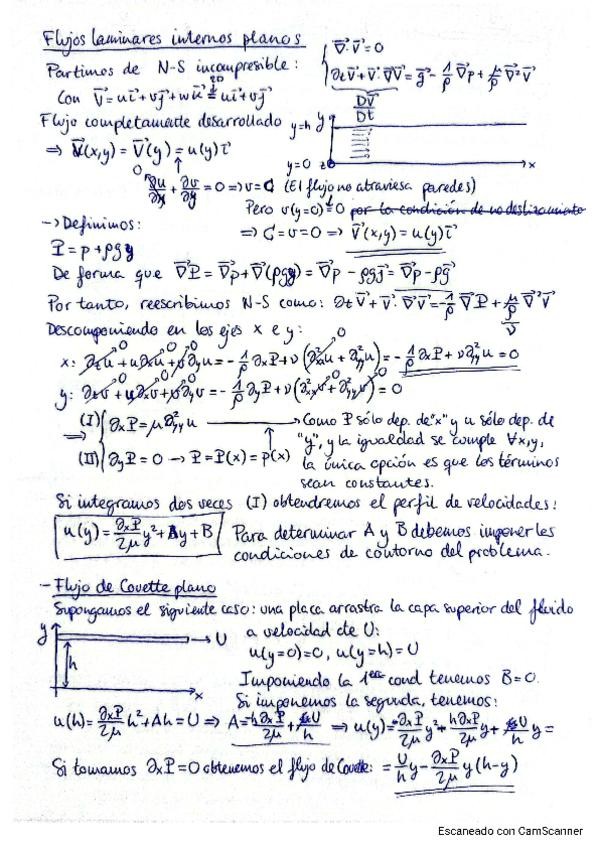 Flujos laminares internos planos
Partimos de N-S incompresible: { ∇⃗·V⃗ = 0
∂tV⃗ + V⃗·∇⃗V⃗ = g⃗ - 1/ρ ∇⃗p + μ/ρ ∇⃗²V⃗
Con V⃗ = ui⃗ + vj⃗ + wk⃗ =(2D) ui⃗ + vj⃗
DV⃗/Dt
Flujo completamente desarrollado
y=h y
⇒ V⃗(x,y) = V⃗(y) = u(y)i⃗
y=0 z x
∂u/∂x (0) + ∂v/∂y = 0 ⇒ v = C (El flujo no atraviesa paredes)
Pero v(y=0) = 0 por la condición de no deslizamiento
→ Definimos: ⇒ C = v = 0 ⇒ V⃗(x,y) = u(y)i⃗
P = p + ρgy
De forma que ∇⃗P = ∇⃗p + ∇⃗(ρgy) = ∇⃗p - ρgj⃗ = ∇⃗p - ρg⃗
Por tanto, reescribimos N-S como: ∂tV⃗ + V⃗·∇⃗V⃗ = -1/ρ ∇⃗P + μ/ρ ∇⃗²V⃗
ν
Descomponiendo en los ejes x e y:
x: ∂tu (0) + u∂xu (0) + v∂yu (0) = -1/ρ ∂xP + ν(∂²xxu (0) + ∂²yyu) = -1/ρ ∂xP + ν∂²yyu = 0
y: ∂tv (0) + u∂xv (0) + v∂yv (0) = -1/ρ ∂yP + ν(∂²xxv (0) + ∂²yyv (0)) = 0
⇒ { (I) ∂xP = μ∂²yyu → Como P sólo dep. de "x" y u sólo dep. de
"y", y la igualdad se cumple ∀x,y,
(II) ∂yP = 0 → P = P(x) = p(x)
la única opción es que los términos
sean constantes.
Si integramos dos veces (I) obtendremos el perfil de velocidades:
u(y) = ∂xP/2μ y² + Ay + B Para determinar A y B debemos imponer les
condiciones de contorno del problema.
- Flujo de Couette plano
Supongamos el siguiente caso: una placa arrastra la capa superior del fluido
y → U a velocidad cte U:
h u(y=0)=0, u(y=h)=U
Imponiendo la 1era cond tenemos B=0.
x Si imponemos la segunda, tenemos:
u(h) = ∂xP/2μ h² + Ah = U ⇒ A = -h∂xP/2μ + U/h ⇒ u(y) = ∂xP/2μ y² + h∂xP/2μ y + U/h y =
Si tomamos ∂xP = 0 obtenemos el flujo de Couette: = U/h y - ∂xP/2μ y(h-y)
Escaneado con CamScanner